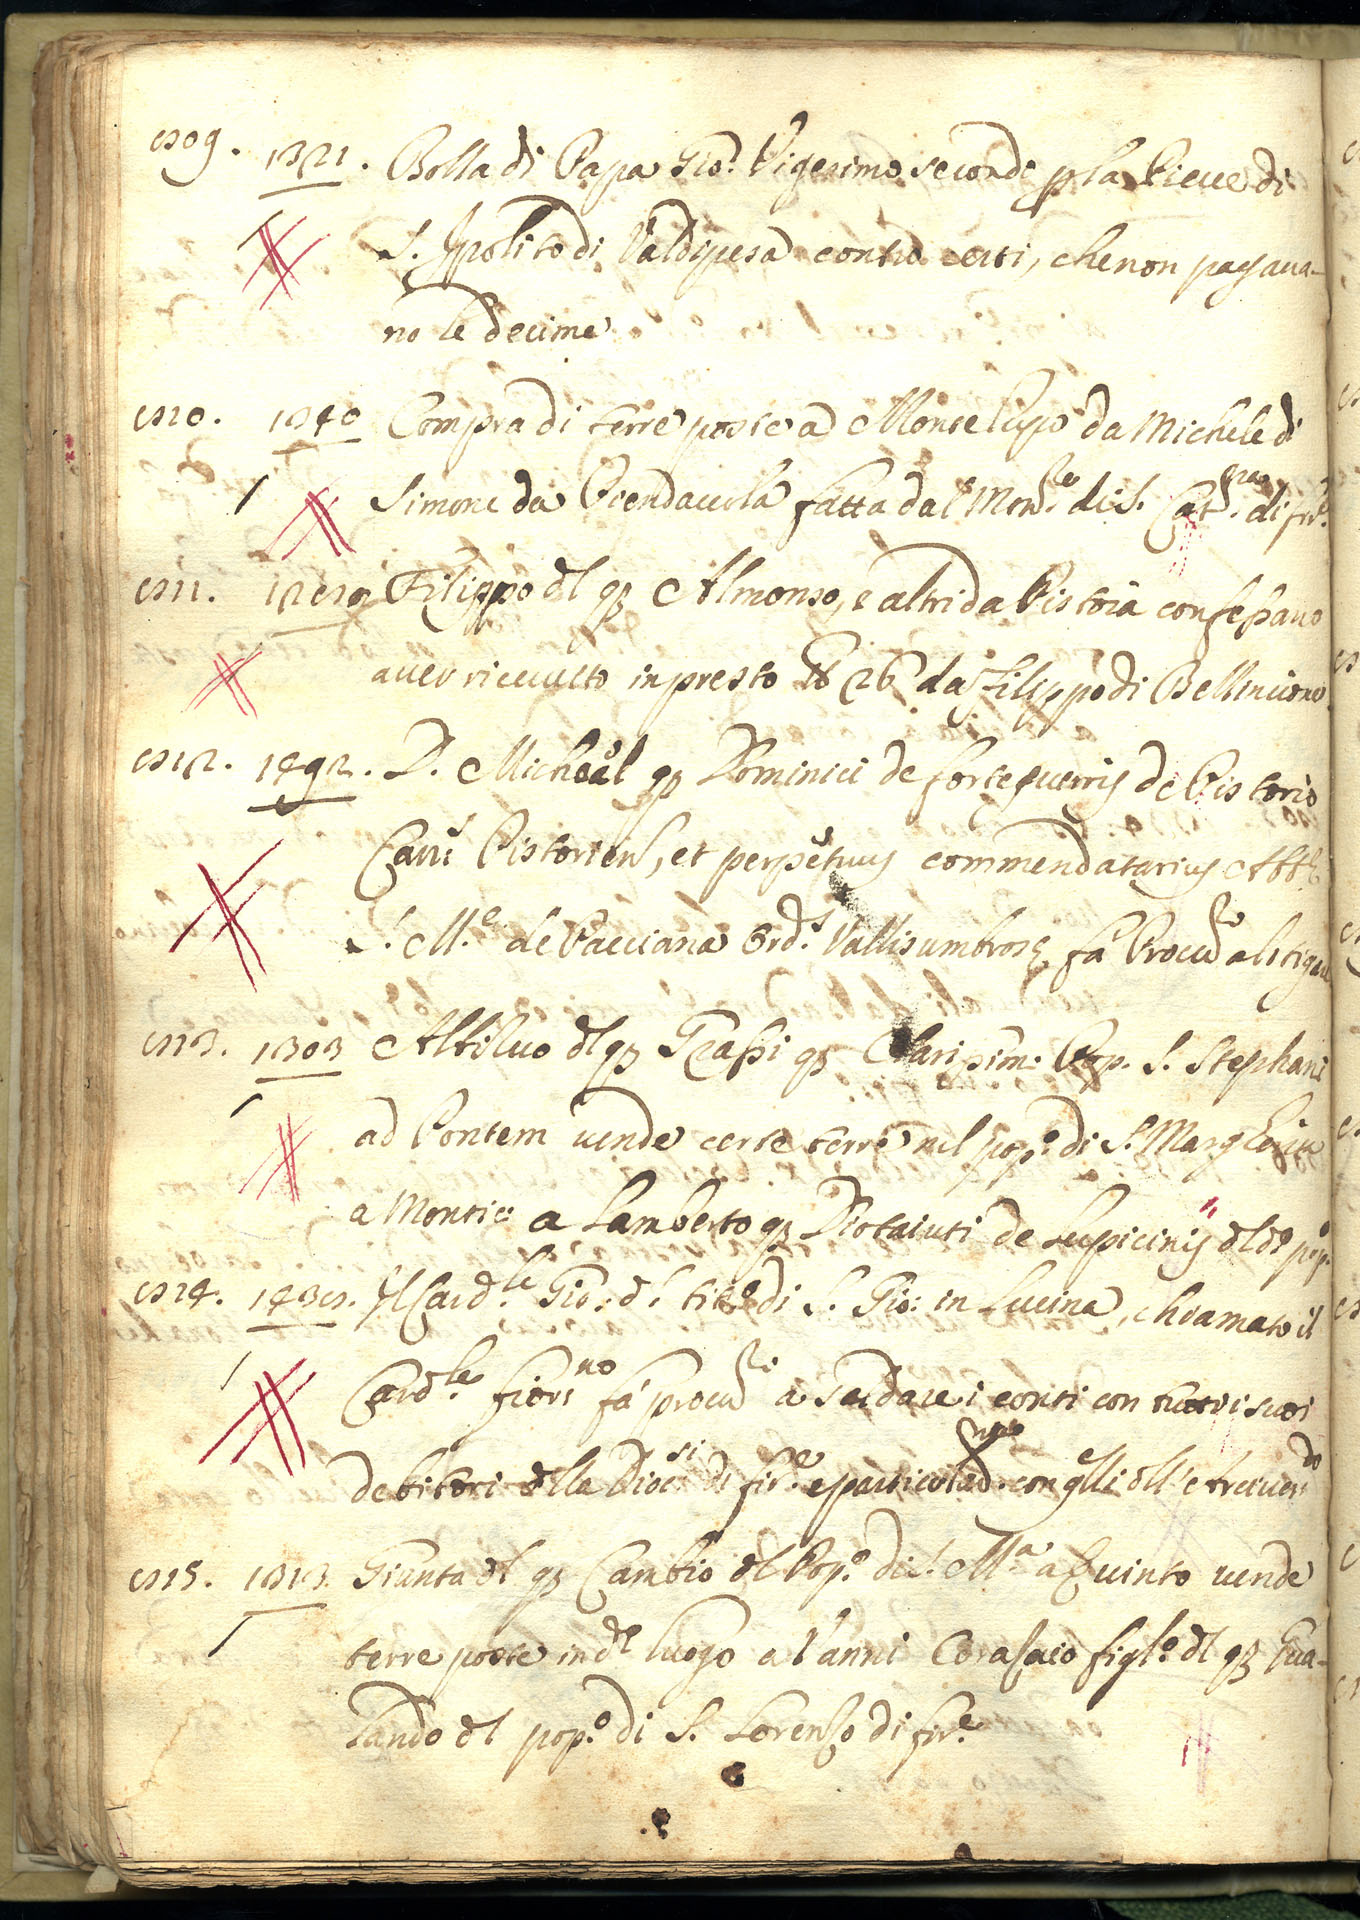 509. 1321. Bolla di Papa Gio: Vigesimo secondo p la Pieue di
S. Ipolito di Valdipesa contro certi, che non pagaua-
no le decime
510. 1340 Compra di terre poste a Monte Lupo da Michele di
Simone da fatta dal Mon.ro di S. Cat.na di fir.e
511. Filippo dl qz Almonso, e altri da Pistoia confessano
auer riceuuto in presto 26 da Filippo di Bellincione
512. 1492. D. Michael qz Dominici de forteguerris de Pistorio
Can. Pistorien, et perpetuus commendatarius Abb.
S. M.e de Pacciana Ord. Vallisumbrose fa Procu.re a litigare
513. 1303 dl qz qz Pop. S. Stephani
ad Pontem uende certe terre nel pop.o di S. Margherita
a Montici a Lamberto qz Diotaiuti de Lupicinis dl do pop.
514. 1435. Il Card.le Gio: dl tito.o di S. Gio: in Lucina, chiamato il
Card.le fiore.no fa procu.ri a saldare i conti con tutti i suoi
debitori della Dioc.si di fir.e e particolar. con qlli dll'Arciues.do
515. 1313. Giunta dl qz Cambio dl Pop.o di S. M.a a Quinto uende
terre poste in do luogo a Vanni Corazaio figlo.o dl qz Gua-
lando dl pop.o di S. Lorenzo di fir.e